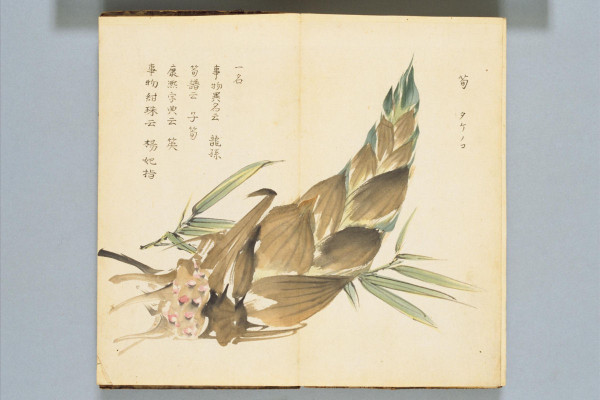 筍 タケノコ
一名
事物異名云 龍孫
筍譜云 子筍
康熙字典云 䇦
事物紺珠云 楊妃指